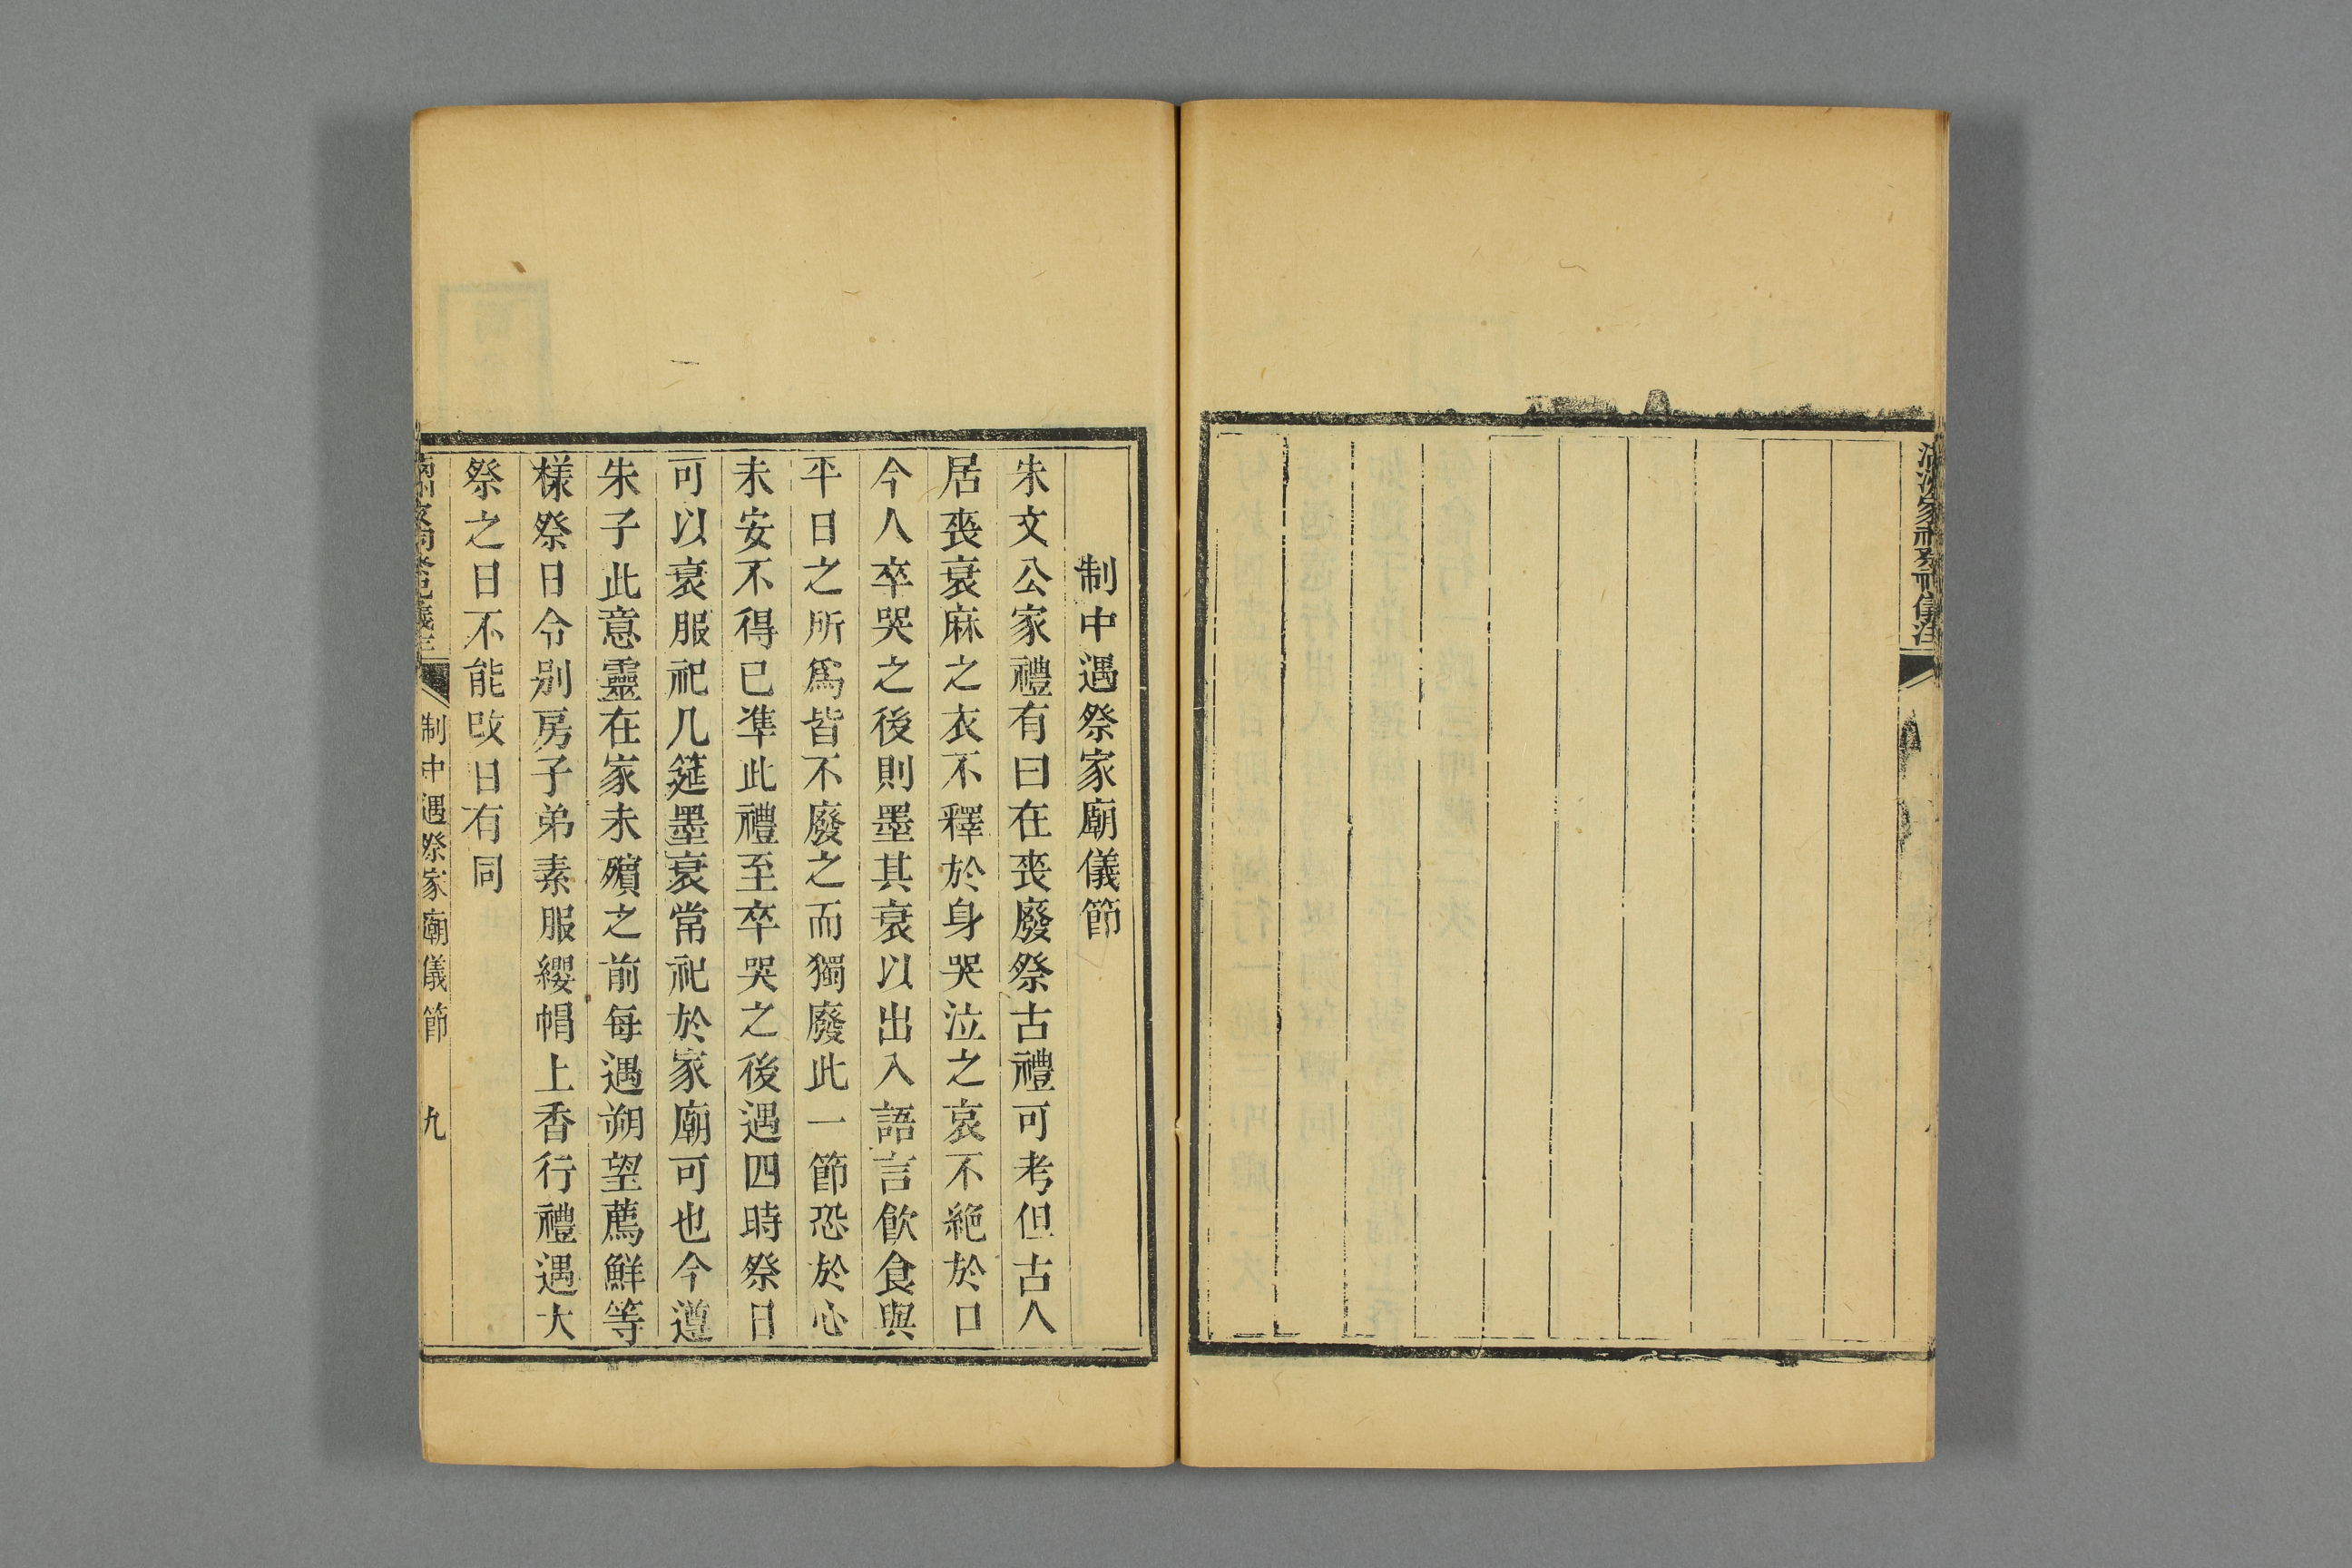 制中遇祭家廟儀節
朱文公家禮有曰在丧廢祭古禮可考但古人
居丧衰麻之衣不釋於身哭泣之哀不絶於口
今人卒哭之後則墨其衰以出入語言飲食與
平日之所爲皆不廢之而獨廢此一節恐於心
未安不得已準此禮至卒哭之後遇四時祭日
可以衰服祀几筵墨衰常祀於家廟可也今遵
朱子此意靈在家未殯之前每遇朔望薦鮮等
樣祭日令别房子弟素服纓帽上香行禮遇大
祭之日不能改日有同
制中遇祭家廟儀節
九